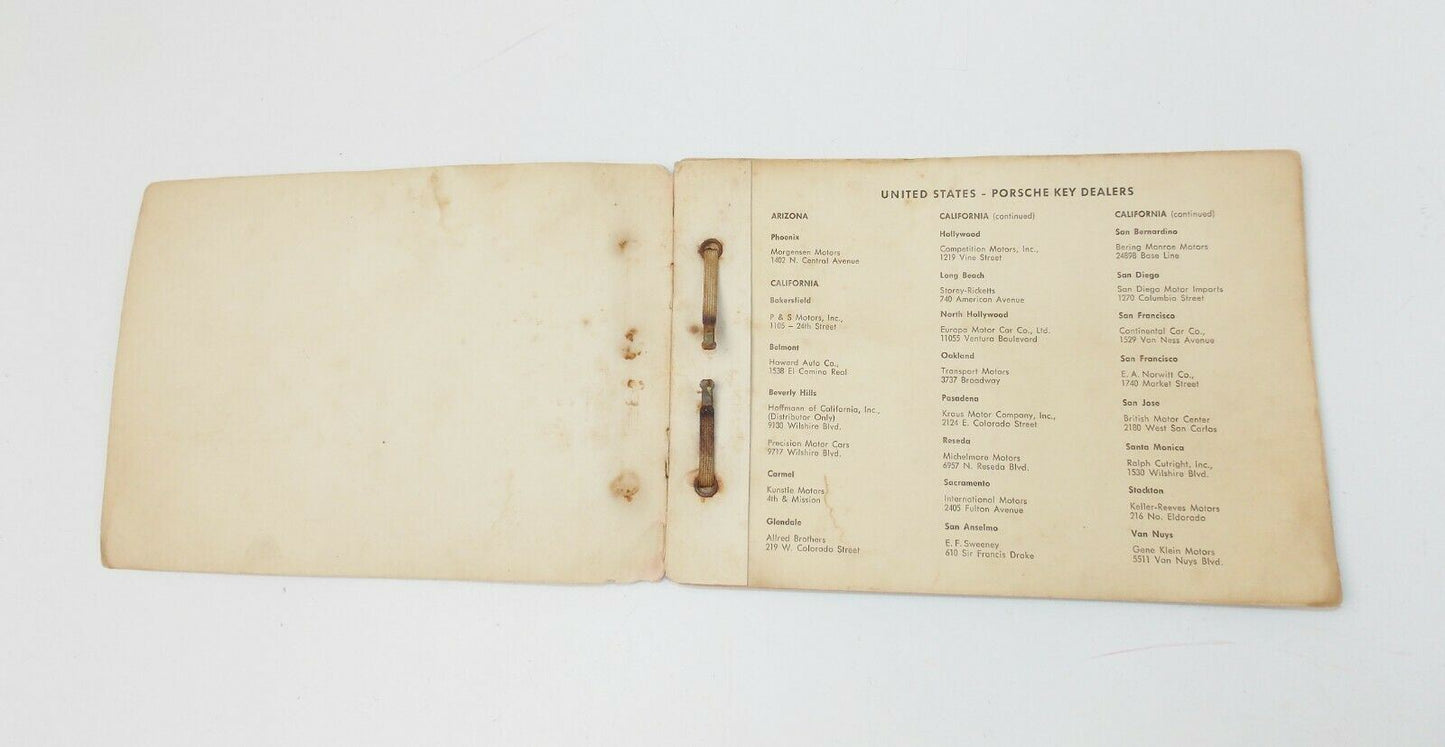 UNITED STATES – PORSCHE KEY DEALERS
ARIZONA
Phoenix
Morgensen Motors
1402 N. Central Avenue
CALIFORNIA
Bakersfield
P & S Motors, Inc.,
1105 – 24th Street
Belmont
Howard Auto Co.,
1538 El Camino Real
Beverly Hills
Hoffmann of California, Inc.,
(Distributor Only)
9130 Wilshire Blvd.
Precision Motor Cars
9717 Wilshire Blvd.
Carmel
Kunstle Motors
4th & Mission
Glendale
Allred Brothers
219 W. Colorado Street
CALIFORNIA (continued)
Hollywood
Competition Motors, Inc.,
1219 Vine Street
Long Beach
Storey-Ricketts
740 American Avenue
North Hollywood
Europa Motor Car Co., Ltd.
11055 Ventura Boulevard
Oakland
Transport Motors
3737 Broadway
Pasadena
Kraus Motor Company, Inc.,
2124 E. Colorado Street
Reseda
Michelmore Motors
6957 N. Reseda Blvd.
Sacramento
International Motors
2405 Fulton Avenue
San Anselmo
E. F. Sweeney
610 Sir Francis Drake
CALIFORNIA (continued)
San Bernardino
Bering Monroe Motors
24898 Base Line
San Diego
San Diego Motor Imports
1270 Columbia Street
San Francisco
Continental Car Co.,
1529 Van Ness Avenue
San Francisco
E. A. Norwitt Co.,
1740 Market Street
San Jose
British Motor Center
2180 West San Carlos
Santa Monica
Ralph Cutright, Inc.,
1530 Wilshire Blvd.
Stockton
Keller-Reeves Motors
216 No. Eldorado
Van Nuys
Gene Klein Motors
5511 Van Nuys Blvd.